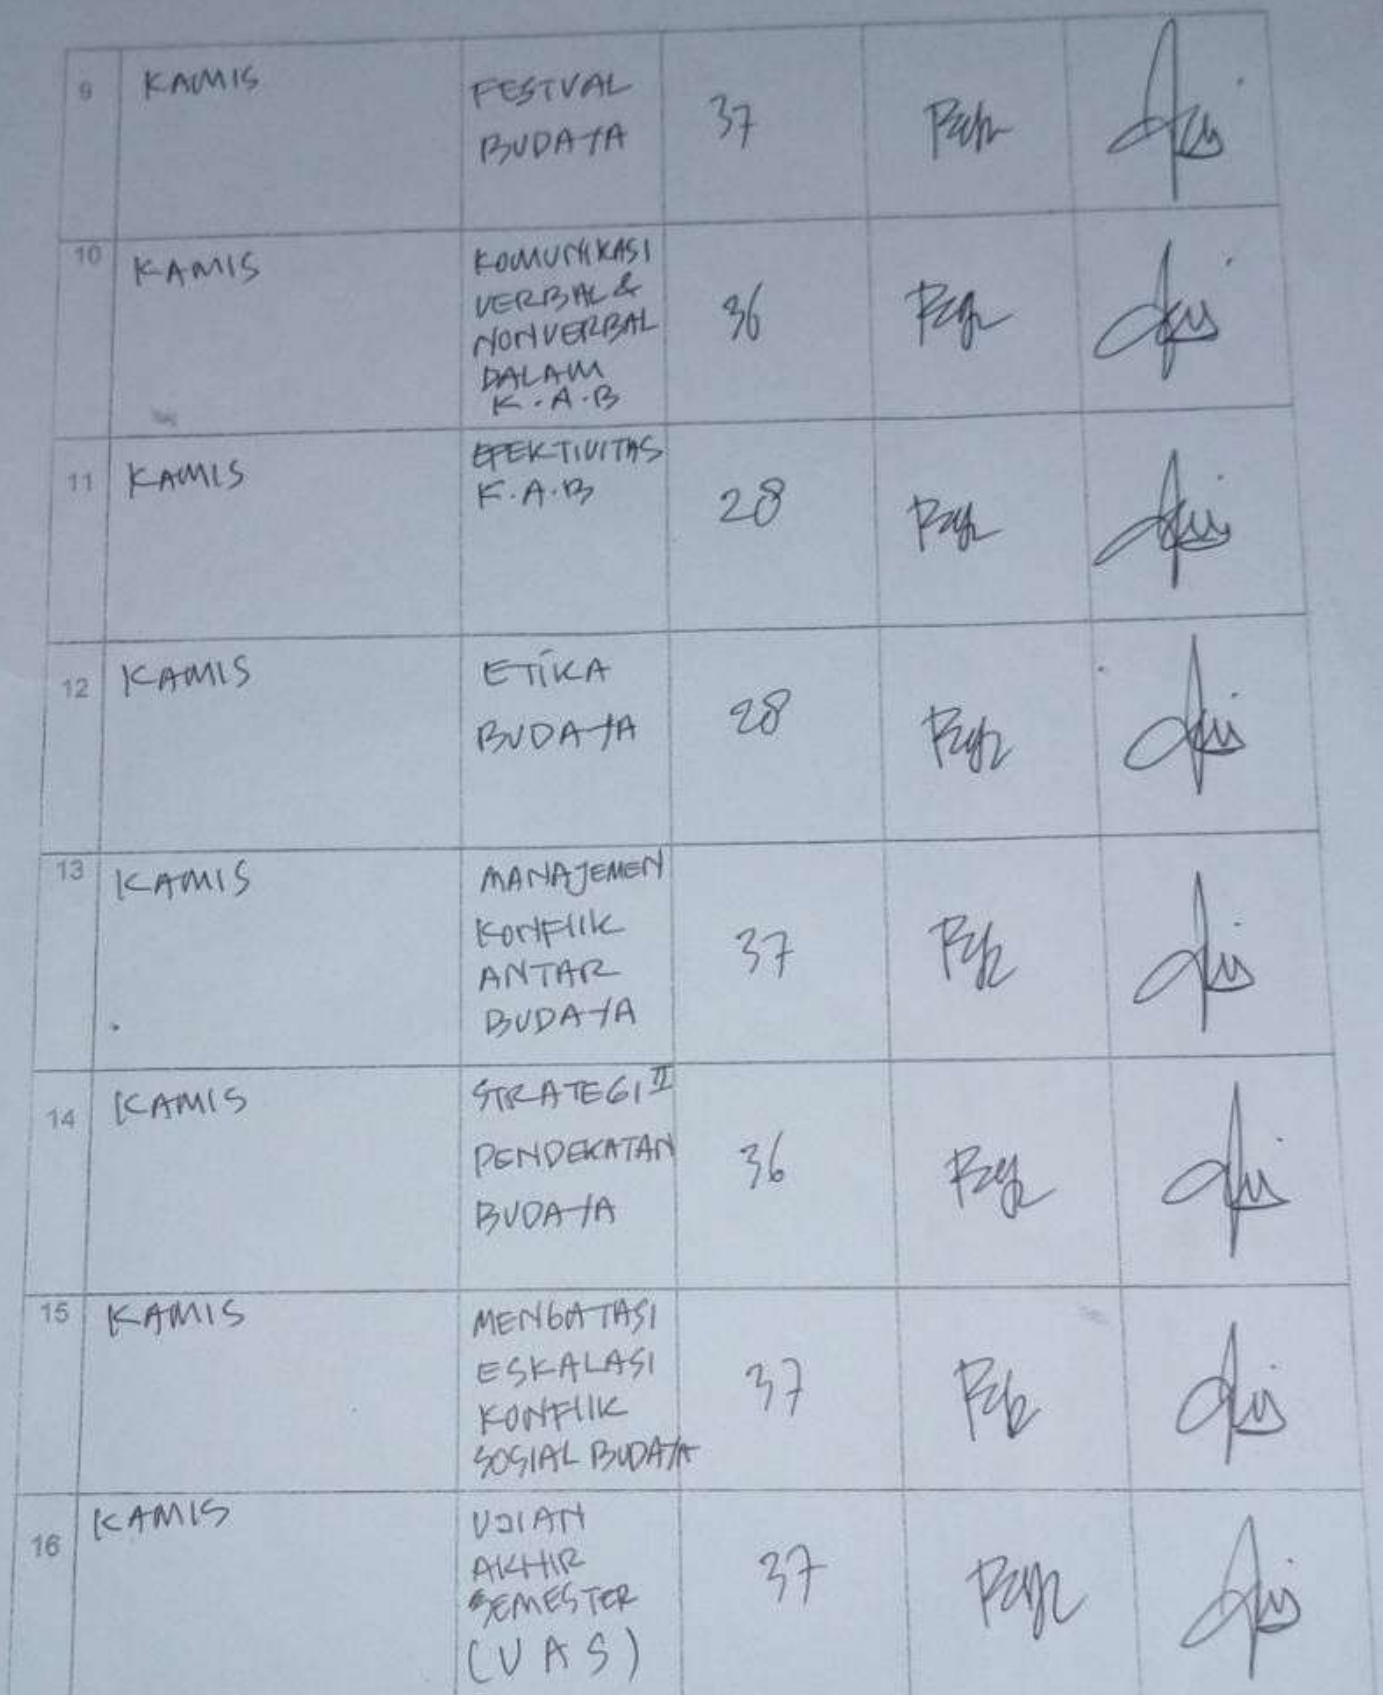 9 KAMIS FESTVAL 37
BUDAYA
10 KAMIS KOMUNIKASI 36
VERBAL &
NONVERBAL
DALAM
K.A.B
11 KAMIS EFEKTIVITAS 28
K.A.B
12 KAMIS ETIKA 28
BUDAYA
13 KAMIS MANAJEMEN 37
KONFLIK
ANTAR
BUDAYA
14 KAMIS STRATEGI II 36
PENDEKATAN
BUDAYA
15 KAMIS MENGATASI 37
ESKALASI
KONFLIK
SOSIAL BUDAYA
16 KAMIS UJIAN 37
AKHIR
SEMESTER
(UAS)